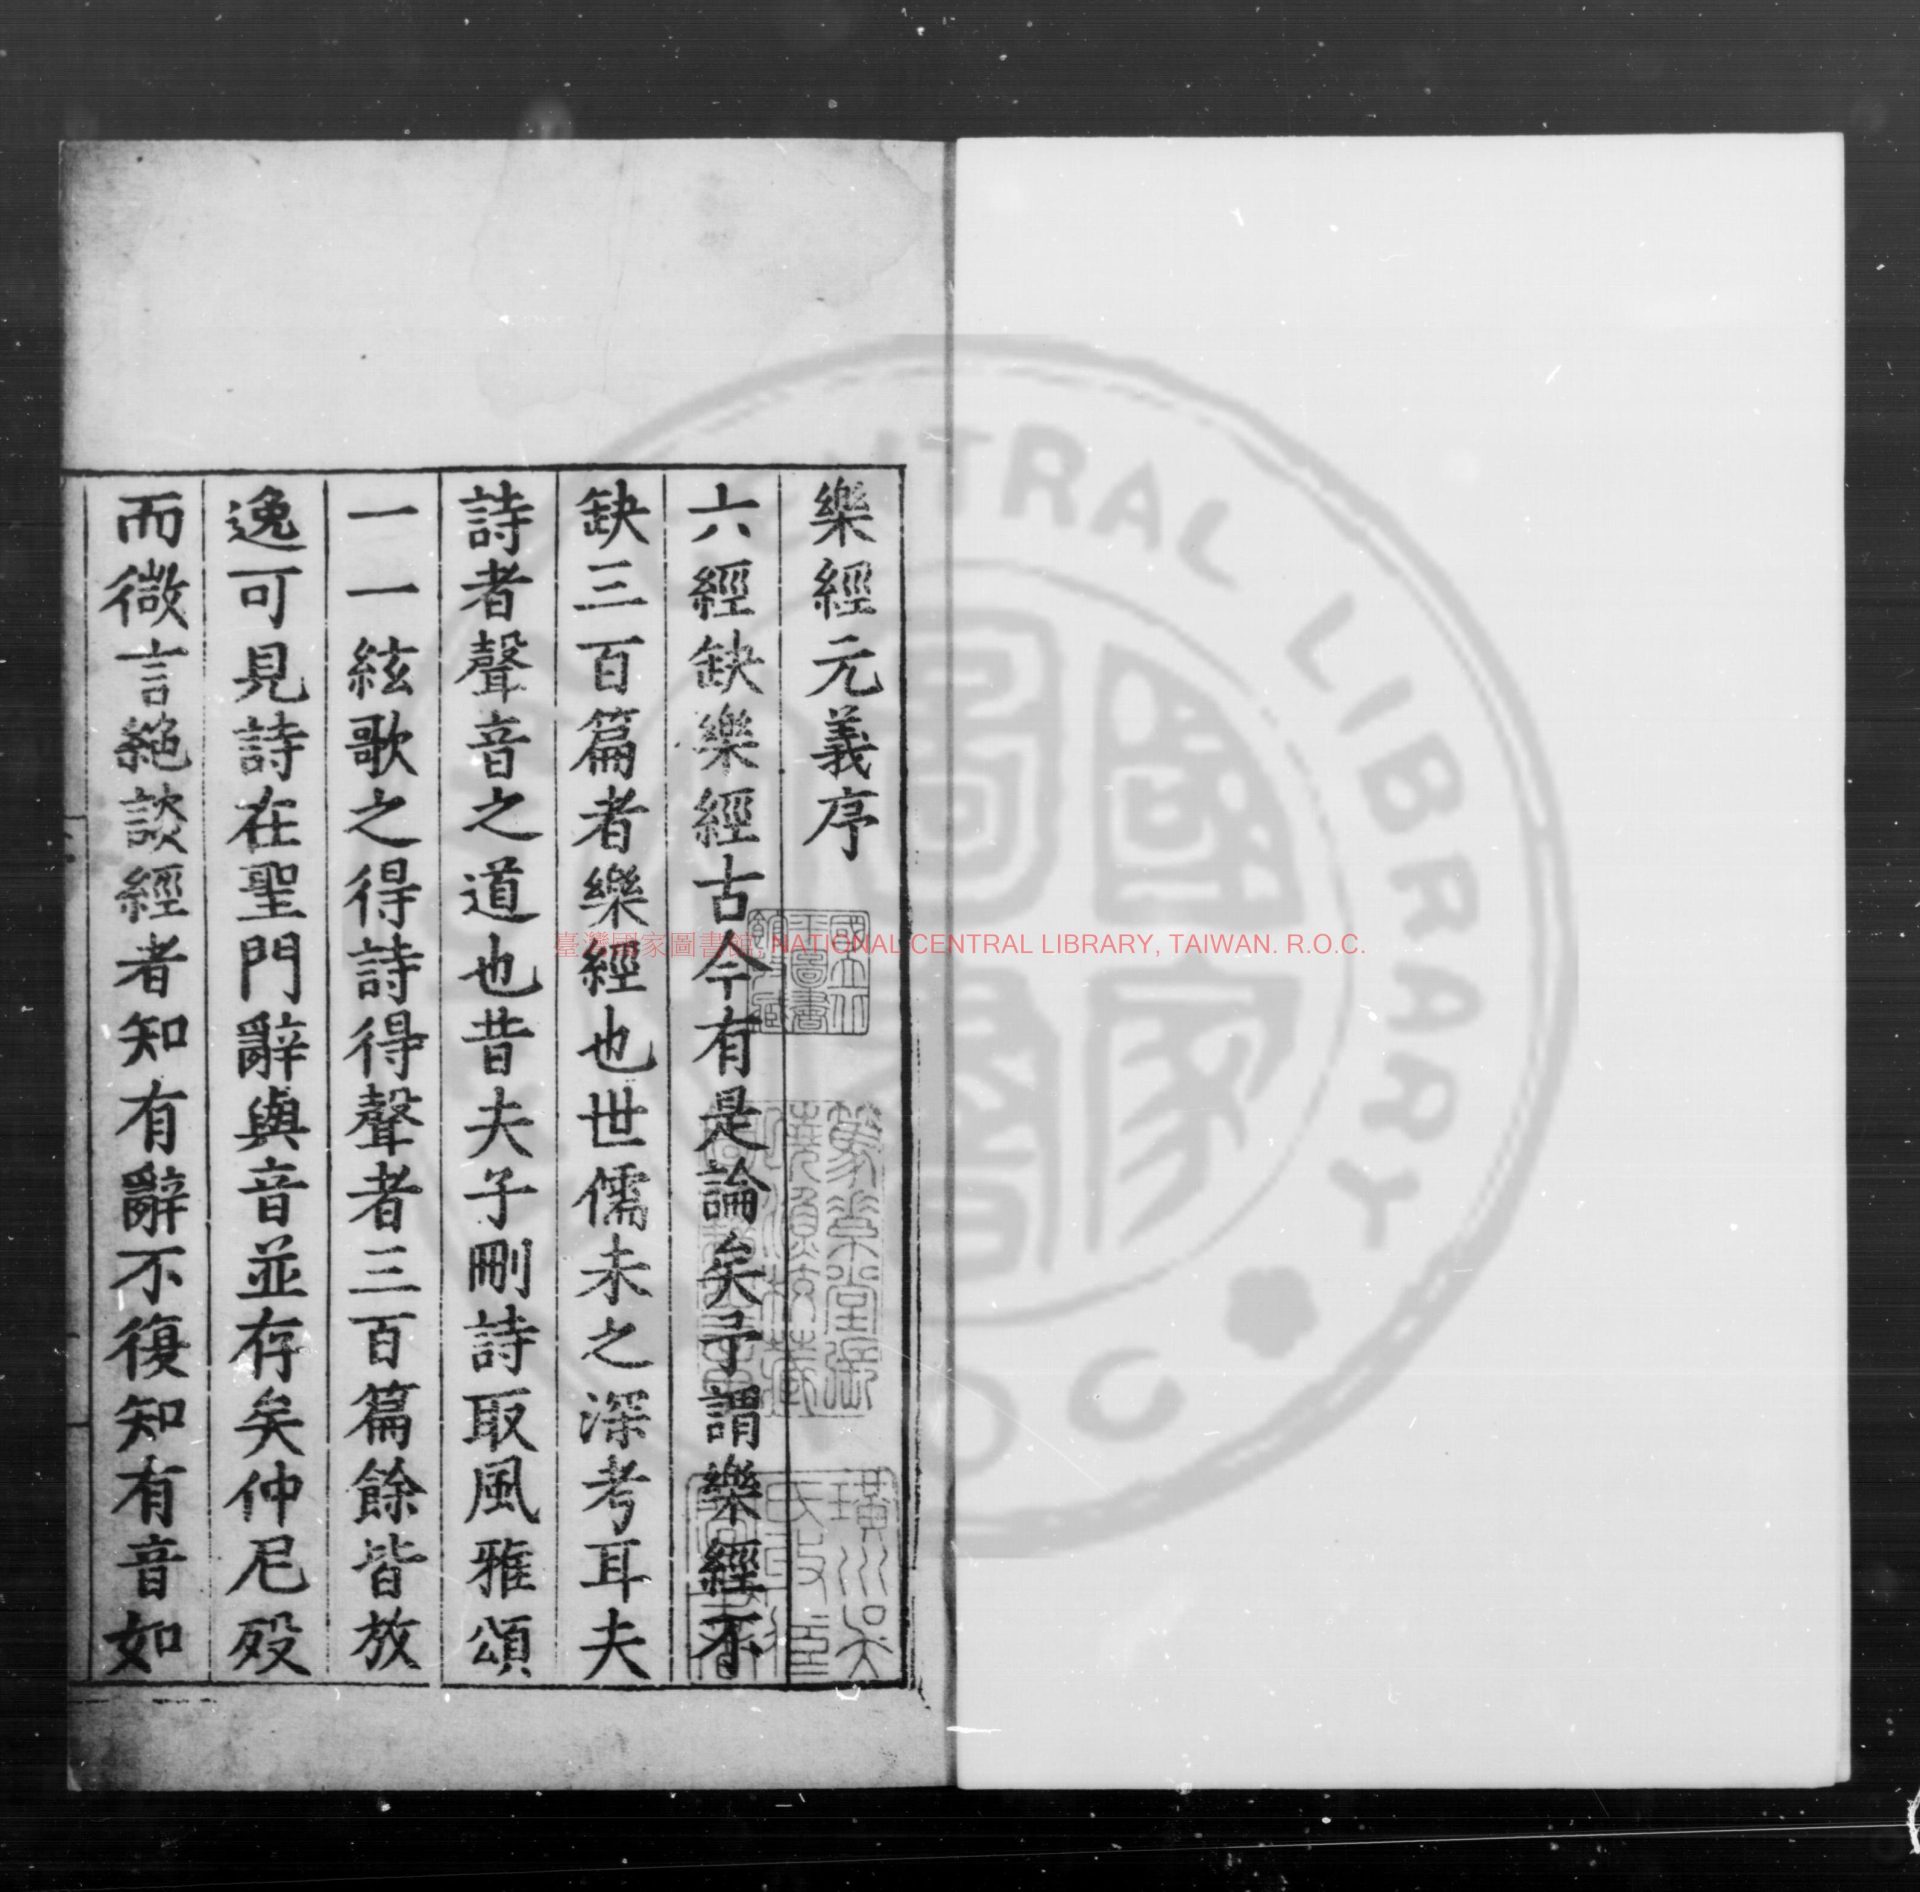 樂經元義序
六經缺樂經古今有是論矣予謂樂經不
缺三百篇者樂經也世儒未之深考耳夫
詩者聲音之道也昔夫子刪詩取風雅頌
一一絃歌之得詩得聲者三百篇餘皆放
逸可見詩在聖門辭與音並存矣仲尼歿
而微言絕談經者知有辭不復知有音如
臺灣國家圖書館, NATIONAL CENTRAL LIBRARY, TAIWAN. R.O.C.